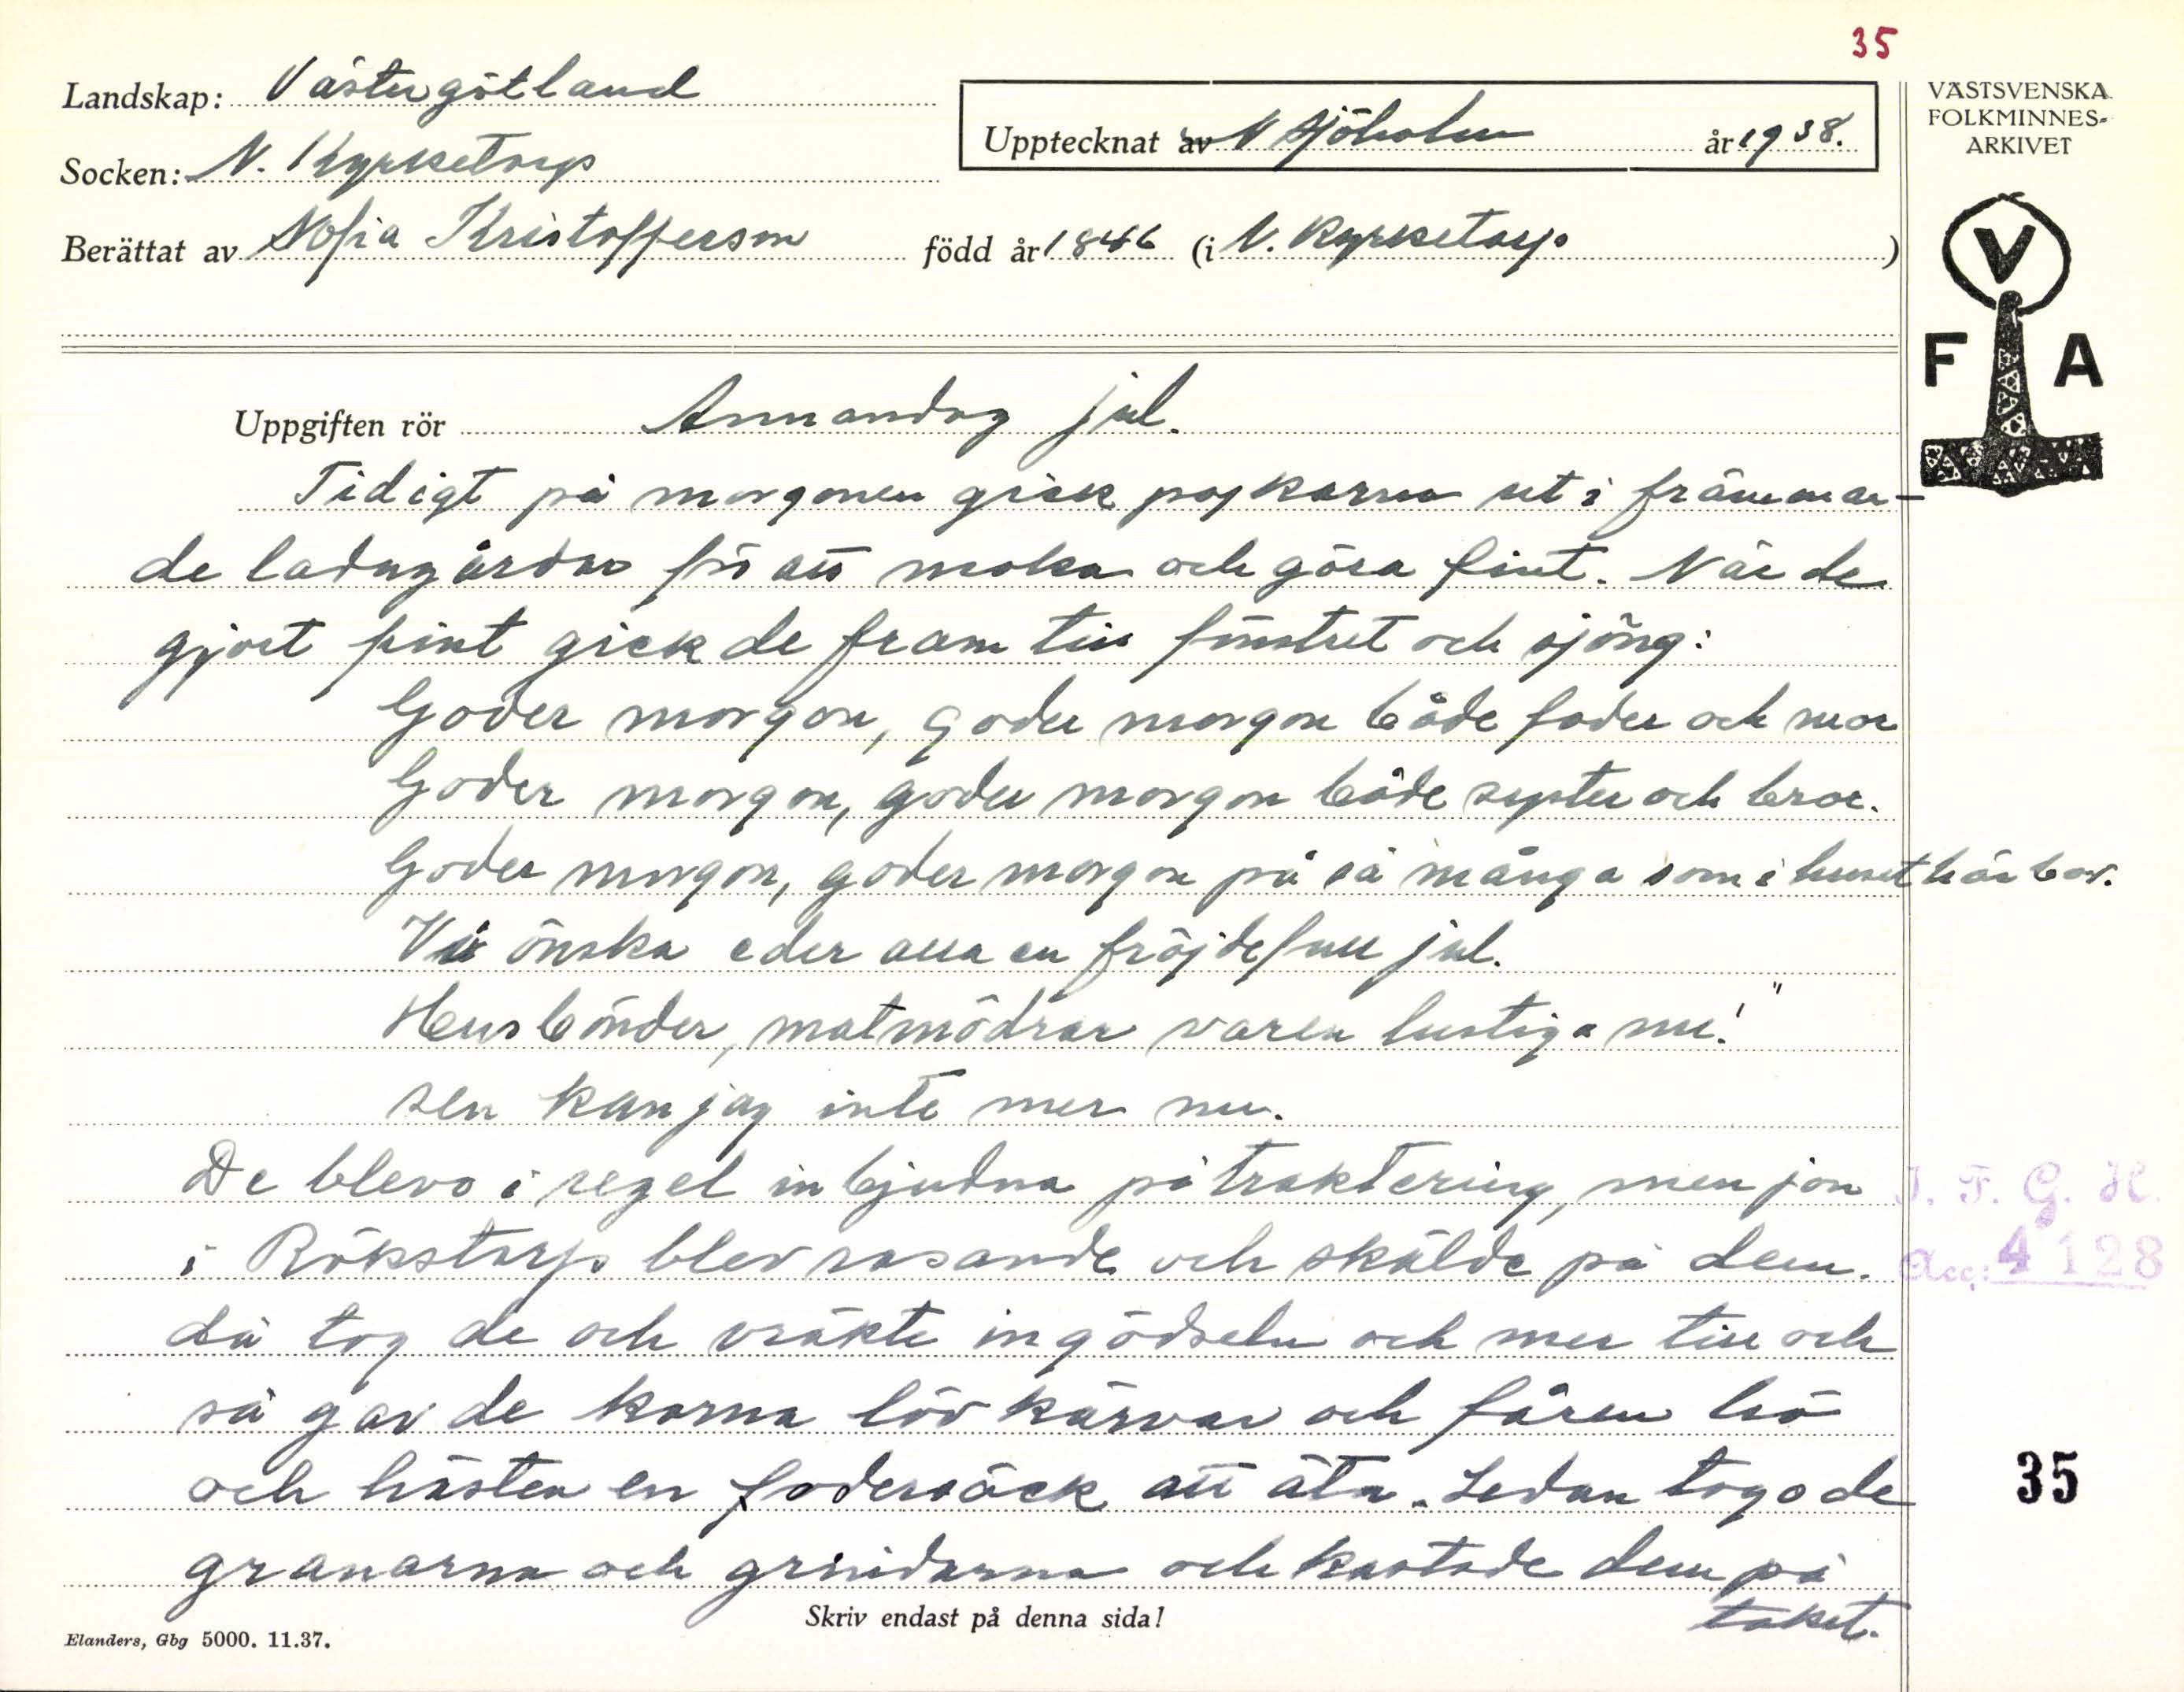 35
Landskap: Västergötland
Socken: N. Kyrketorp
Berättat av Sofia Kristofferson född år 1846 (i N. Kyrketorp)
Upptecknat av N Sjöholm år 1938.
VÄSTSVENSKA
FOLKMINNES-
ARKIVET
V
F A
Uppgiften rör Annandag jul.
Tidigt på morgonen gick pojkarna ut i främman-
de ladugårdar för att moka och göra fint. När de
gjort fint gick de fram till fönstret och sjöng:
Goder morgon, goder morgon både fader och mor
Goder morgon, goder morgon både syster och bror.
Goder morgon, goder morgon på så många som i huset här bor.
Vi önska eder alla en fröjdefull jul.
Husbönder, matmödrar varen lustiga nu!"
sen kan jag inte mer nu.
De blevo i regel inbjudna på traktering, men jon
i Rökstorp blev rasande och skälde på dem.
då tog de och vräkte in gödseln och mer till och
så gav de korna lövkärvar och fåren hö
och hästen en fodersäck att äta. Sedan togo de
granarna och grindarna och kastade dem på
taket.
I. F. G. H.
Acc: 4128
35
Skriv endast på denna sida!
Elanders, Gbg 5000. 11.37.